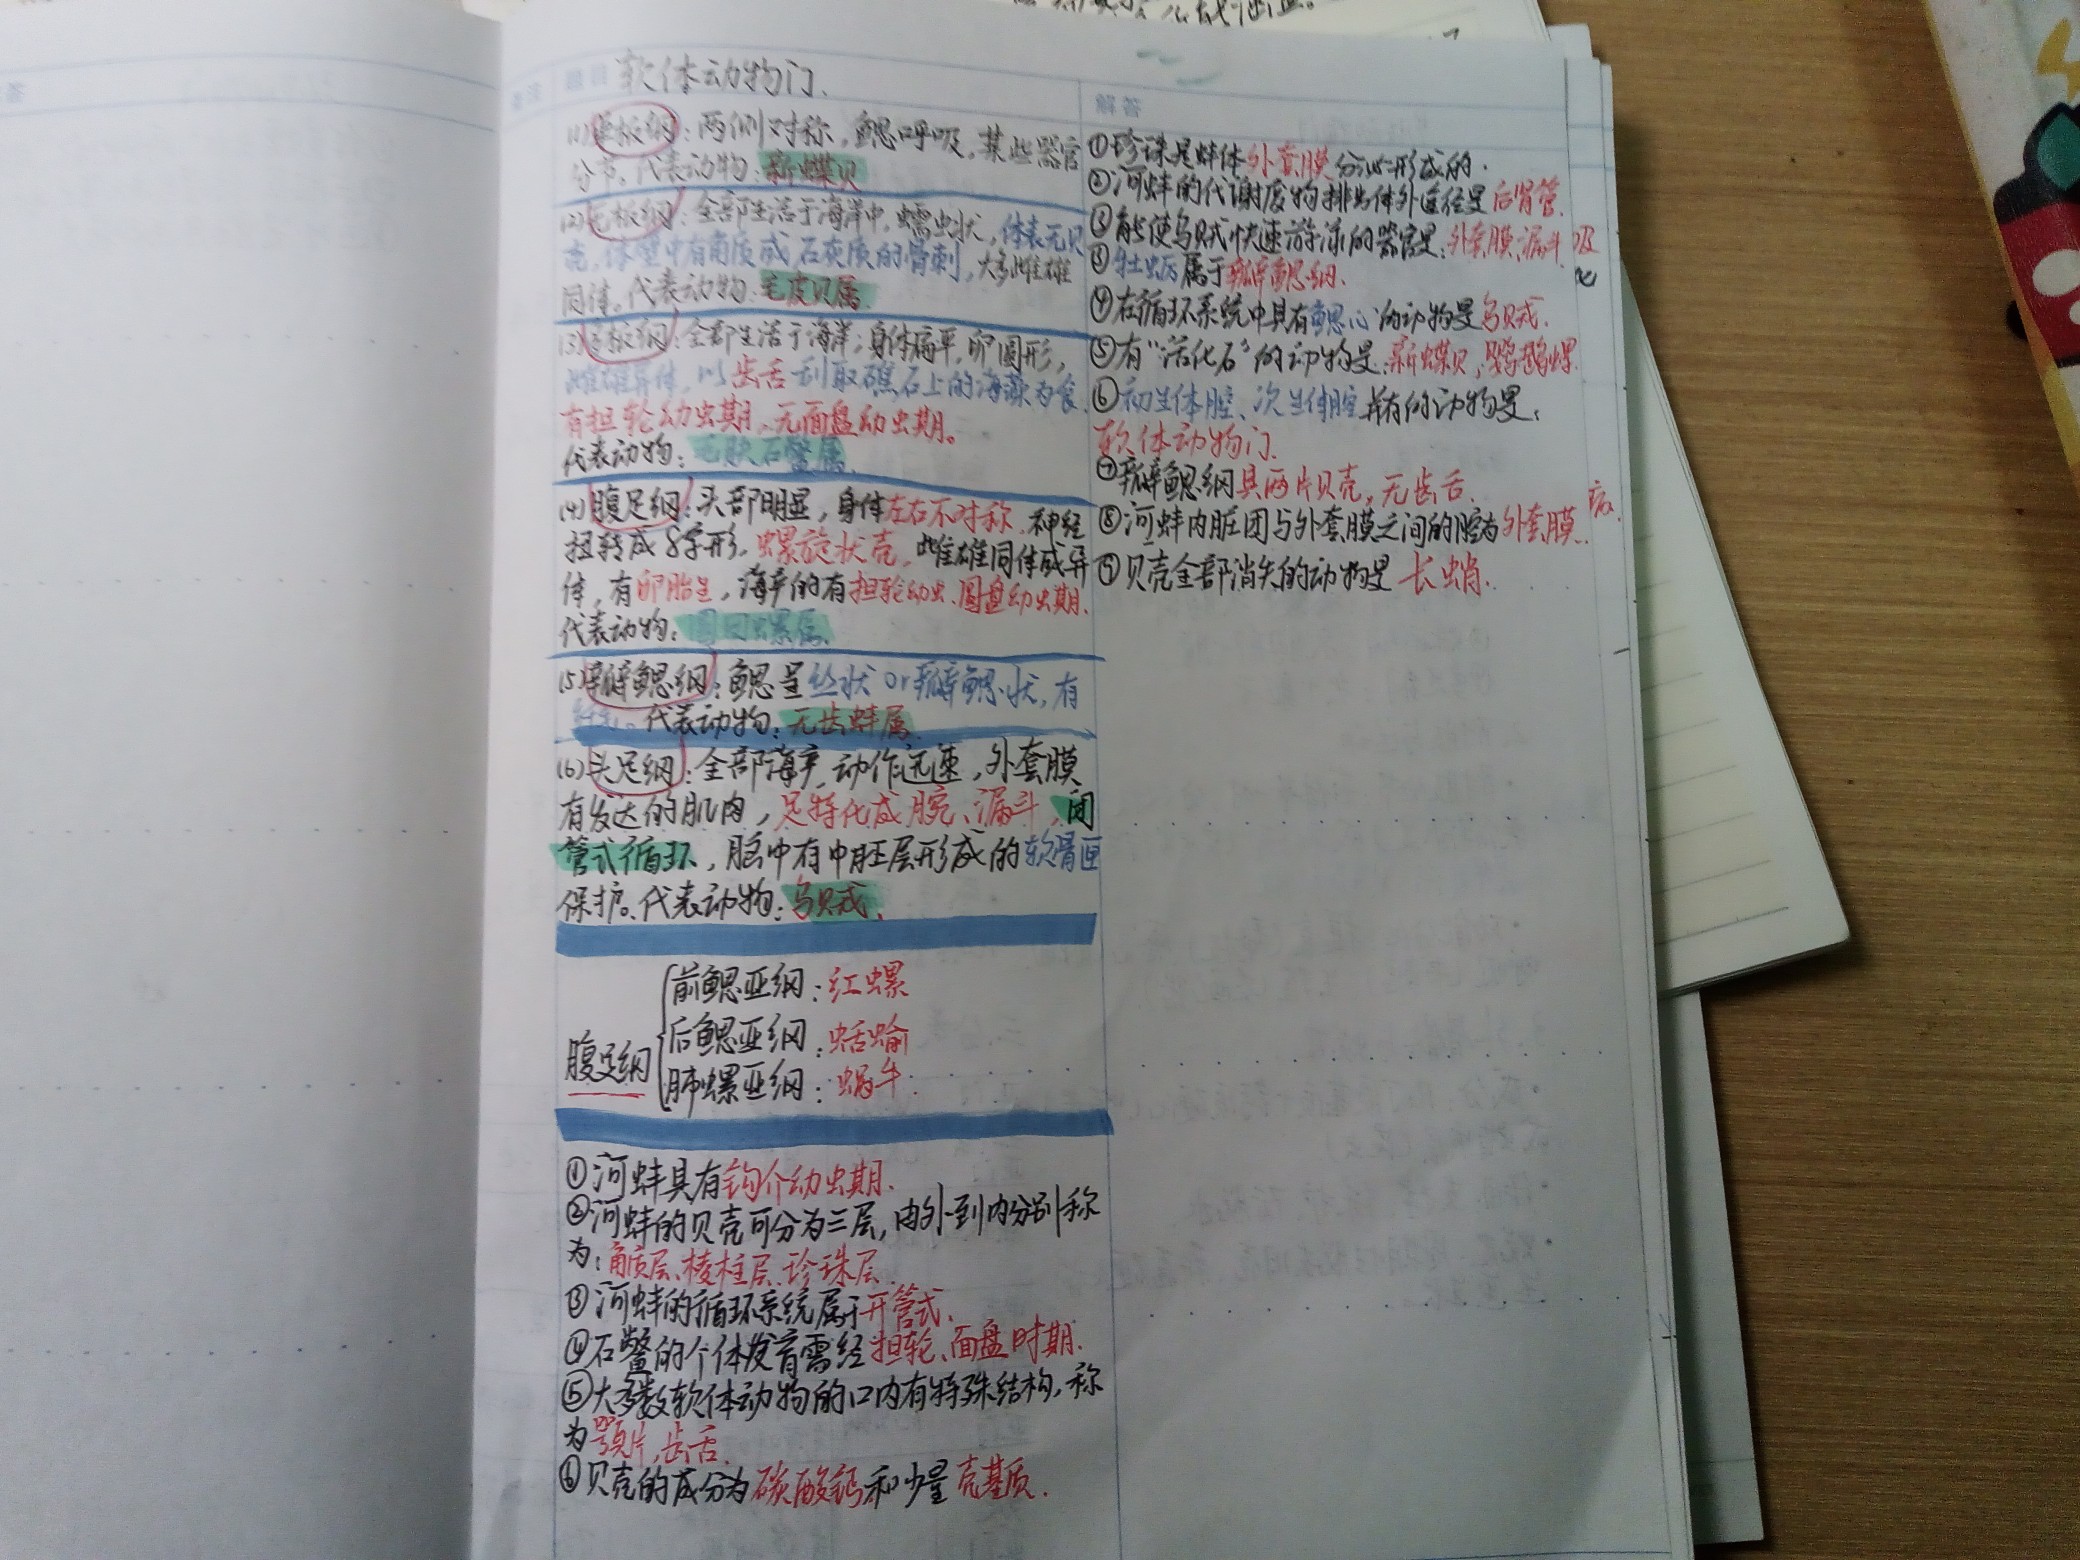 软体动物门.
解答
(1)单板纲：两侧对称，鳃呼吸，某些器官
分节。代表动物：新蝶贝
(2)无板纲：全部生活于海洋中，蠕虫状，体表无贝
壳，体壁中有角质或石灰质的骨刺，大多雌雄
同体。代表动物：毛皮贝属.
(3)多板纲：全部生活于海洋；身体扁平，卵圆形，
雌雄异体，以齿舌刮取礁石上的海藻为食.
有担轮幼虫期、无面盘幼虫期。
代表动物：毛肤石鳖属.
(4)腹足纲：头部明显，身体左右不对称，神经
扭转成8字形，螺旋状壳，雌雄同体或异
体，有卵胎生，海产的有担轮幼虫、圆盘幼虫期.
代表动物：圆田螺属.
(5)瓣鳃纲：鳃呈丝状or瓣鳃状，有
代表动物：无齿蚌属
(6)头足纲：全部海产，动作迅速，外套膜
有发达的肌肉，足特化成腕、漏斗，闭
管式循环，脑中有中胚层形成的软骨匣
保护。代表动物：乌贼.
腹足纲
前鳃亚纲：红螺
后鳃亚纲：蛞蝓
肺螺亚纲：蜗牛.
①河蚌具有钩介幼虫期.
②河蚌的贝壳可分为三层，由外到内分别称
为：角质层、棱柱层、珍珠层.
③河蚌的循环系统属于开管式.
④石鳖的个体发育需经担轮、面盘时期.
⑤大多数软体动物的口内有特殊结构，称
为颚片，齿舌.
⑥贝壳的成分为碳酸钙和少量壳基质.
①珍珠是蚌体外套膜分泌形成的.
②河蚌的代谢废物排出体外途径是后肾管.
③能使乌贼快速游泳的器官是：外套膜、漏斗
③牡蛎属于瓣鳃纲.
④在循环系统中具有鳃心的动物是乌贼.
⑤有“活化石”的动物是：新蝶贝，鹦鹉螺
⑥初生体腔、次生体腔并有的动物是：
软体动物门.
⑦瓣鳃纲具两片贝壳，无齿舌.
⑧河蚌内脏团与外套膜之间的腔为外套膜腔.
⑨贝壳全部消失的动物是长蛸.